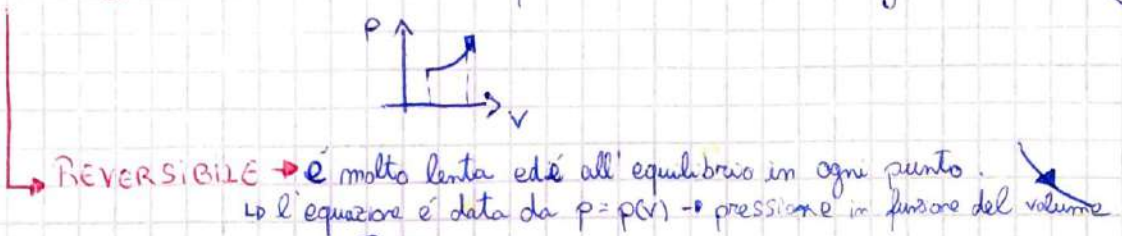 P
V
REVERSIBILE → é molto lenta ed é all'equilibrio in ogni punto.
↳ l'equazione é data da p = p(v) → pressione in funzione del volume